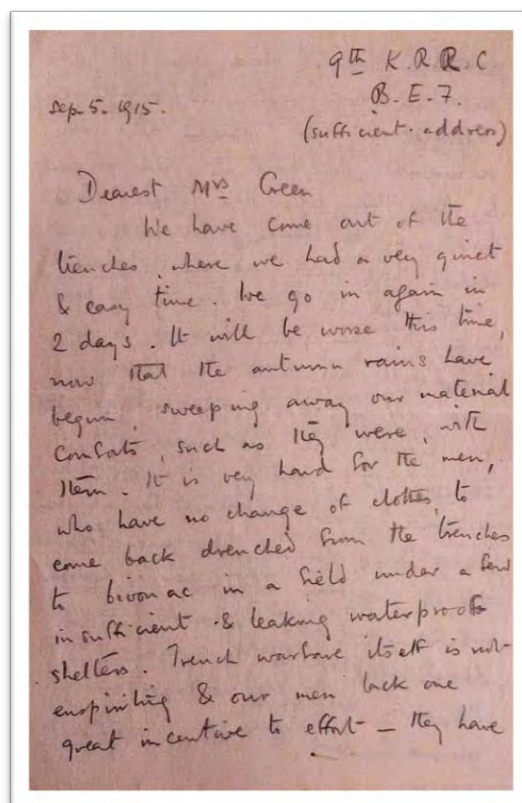 9th K.R.R.C
B.E.F.
Sep. 5. 1915.
(sufficient address)
Dearest Mrs Green
We have come out of the
trenches, where we had a very quiet
& easy time. We go in again in
2 days. It will be worse this time,
now that the autumn rains have
begun, sweeping away our material
comforts, such as they were, with
them. It is very hard for the men,
who have no change of clothes, to
come back drenched from the trenches
to bivouac in a field under a few
insufficient & leaking waterproof
shelters. Trench warfare itself is not
enspiriting & our men lack one
great incentive to effort — they have